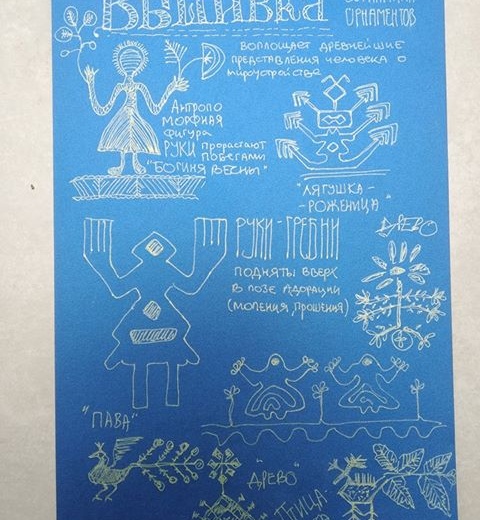 Вышивка
орнаментов
воплощает древнейшие
представления человека о
мироустройстве
Антропо
морфная
фигура
РУКИ прорастают
побегами
"БОГИНЯ ВЕСНЫ"
"ЛЯГУШКА -
- РОЖЕНИЦА"
РУКИ-ГРЕБНИ
ПОДНЯТЫ ВВЕРХ
В ПОЗЕ АДОРАЦИИ
(моления, прошения)
ДРЕВО
"ПАВА"
"ДРЕВО"
ПТИЦА-